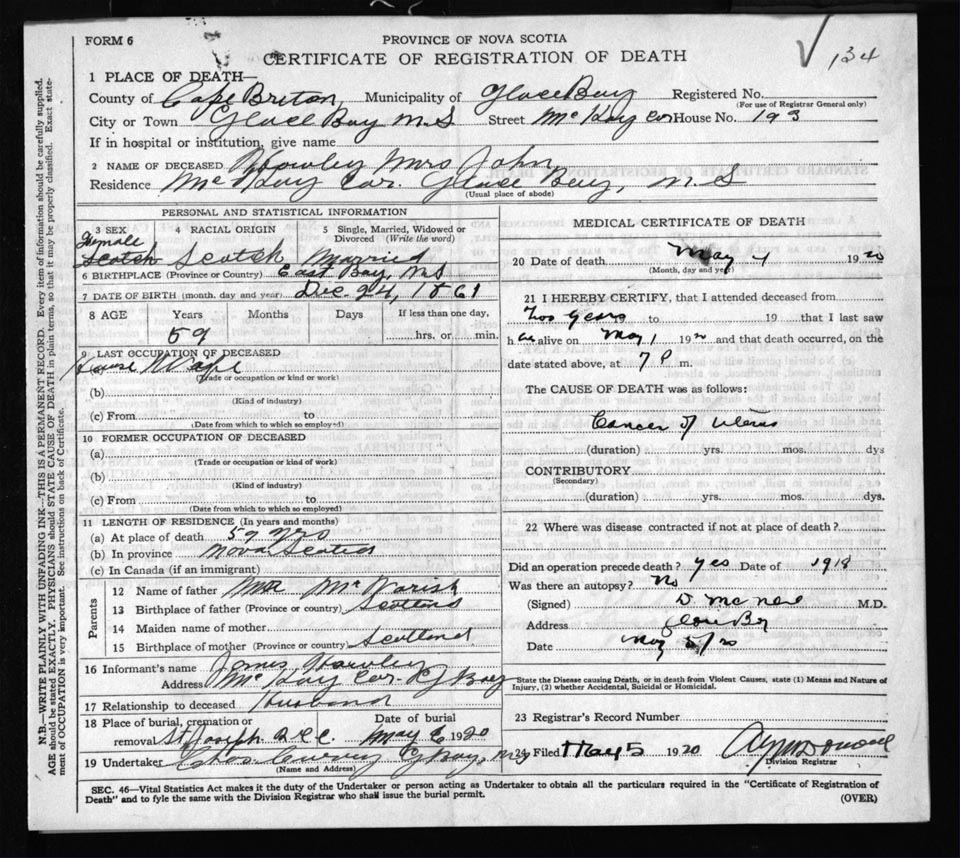 FORM 6
PROVINCE OF NOVA SCOTIA
CERTIFICATE OF REGISTRATION OF DEATH
134
1 PLACE OF DEATH—
County of Cape Breton Municipality of Glace Bay Registered No.
(For use of Registrar General only)
City or Town Glace Bay N.S Street McKay Cor House No. 193
If in hospital or institution, give name
2 NAME OF DECEASED Howley Mrs John
Residence McKay Cor. Glace Bay, N.S
(Usual place of abode)
PERSONAL AND STATISTICAL INFORMATION
3 SEX 4 RACIAL ORIGIN 5 Single, Married, Widowed or Divorced (Write the word)
Female
Scotch Scotch Married
6 BIRTHPLACE (Province or Country) East Bay, N.S
7 DATE OF BIRTH (month, day and year) Dec. 24, 1861
8 AGE Years Months Days If less than one day,
59 hrs. or min.
9 LAST OCCUPATION OF DECEASED
House
(Trade or occupation or kind or work)
(b)
(Kind of industry)
(c) From to
(Date from which to so employed)
10 FORMER OCCUPATION OF DECEASED
(a)
(Trade or occupation or kind of work)
(b)
(Kind of industry)
(c) From to
(Date from which to so employed)
11 LENGTH OF RESIDENCE (In years and months)
(a) At place of death 59 yrs
(b) In province Nova Scotia
(c) In Canada (if an immigrant)
Parents
12 Name of father
13 Birthplace of father (Province or country)
14 Maiden name of mother
15 Birthplace of mother (Province or country) Scotland
16 Informant's name James Howley
Address McKay Cor. G Bay
17 Relationship to deceased Husband
18 Place of burial, cremation or removal St Joseph Date of burial May 6 1920
19 Undertaker Chas G Bay, N.S
(Name and Address)
MEDICAL CERTIFICATE OF DEATH
20 Date of death May 4 1920
(Month, day and year)
21 I HEREBY CERTIFY, that I attended deceased from
Two Years to 19 that I last saw
h er alive on May 1 1920 and that death occurred, on the
date stated above, at 7 P m.
The CAUSE OF DEATH was as follows:
Cancer of Uterus
(duration) yrs. mos. dys
CONTRIBUTORY
(Secondary)
(duration) yrs. mos. dys.
22 Where was disease contracted if not at place of death?
Did an operation precede death? yes Date of 1918
Was there an autopsy? No
(Signed) D. McNeil M.D.
Address Glace Bay
Date May 5/20
State the Disease causing Death, or in death from Violent Causes, state (1) Means and Nature of
Injury, (2) whether Accidental, Suicidal or Homicidal.
23 Registrar's Record Number
24 Filed May 5 1920
Division Registrar
SEC. 46—Vital Statistics Act makes it the duty of the Undertaker or person acting as Undertaker to obtain all the particulars required in the "Certificate of Registration of
Death" and to fyle the same with the Division Registrar who shall issue the burial permit.
(OVER)
N.B.—WRITE PLAINLY WITH UNFADING INK—THIS IS A PERMANENT RECORD. Every item of information should be carefully supplied.
AGE should be stated EXACTLY. PHYSICIANS should STATE CAUSE OF DEATH in plain terms, so that it may be properly classified. Exact state-
ment of OCCUPATION is very important. See instructions on back of Certificate.